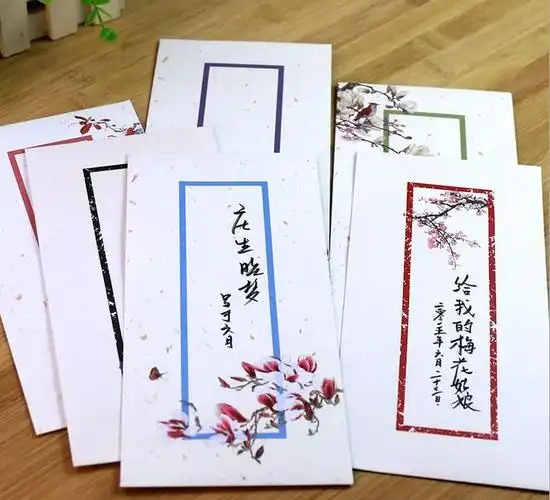 庄生晓梦
写于六月
给我的梅花姑娘
二零一五年六月二十三日